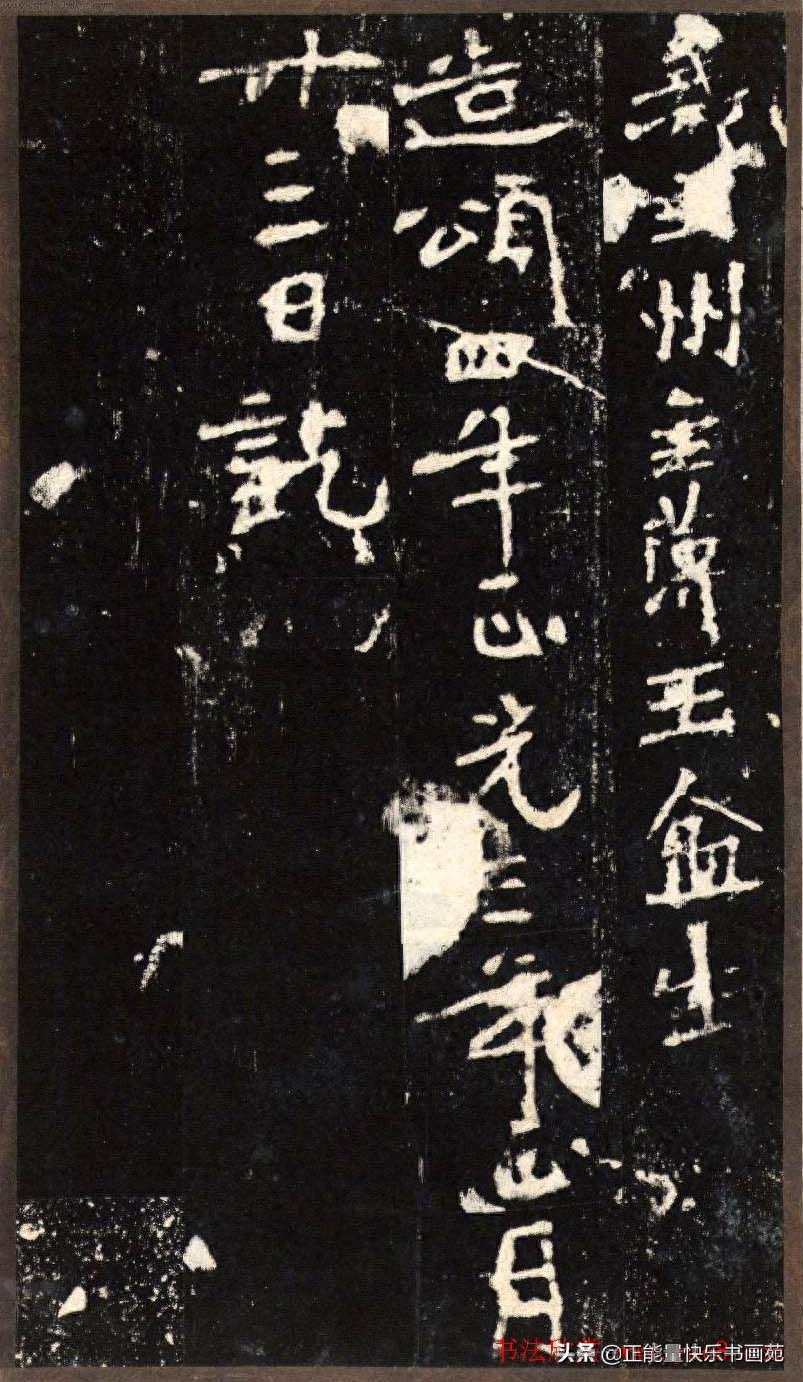 義州主簿王盆生
造頌四年正光三年正月
廿三日訖
书法欣
头条 @正能量快乐书画苑